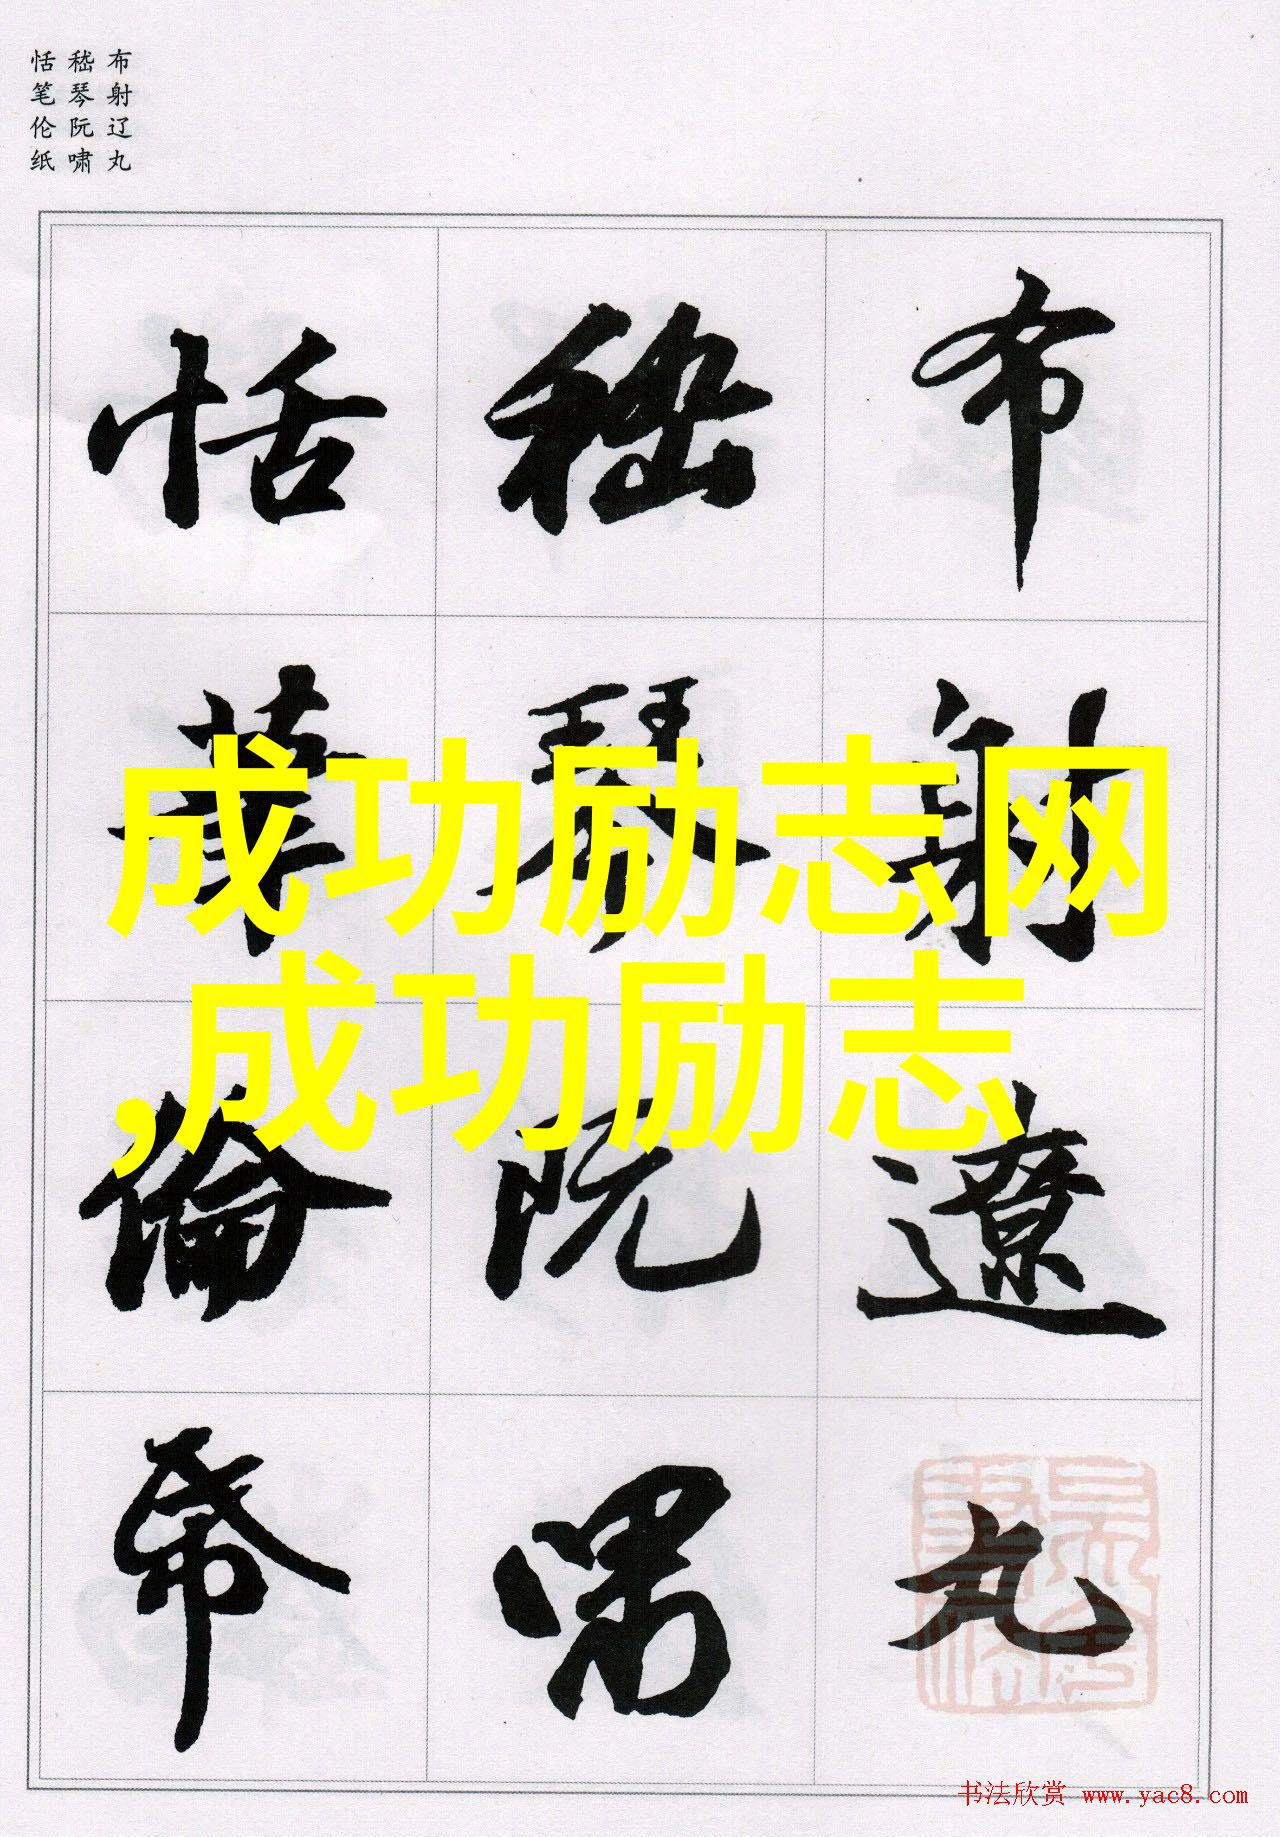 布射辽丸
嵇琴阮啸
恬笔伦纸
布射遼丸
嵇琴阮嘯
恬筆倫帋
成功励志网
,成功励志
书法欣赏 www.yac8.com